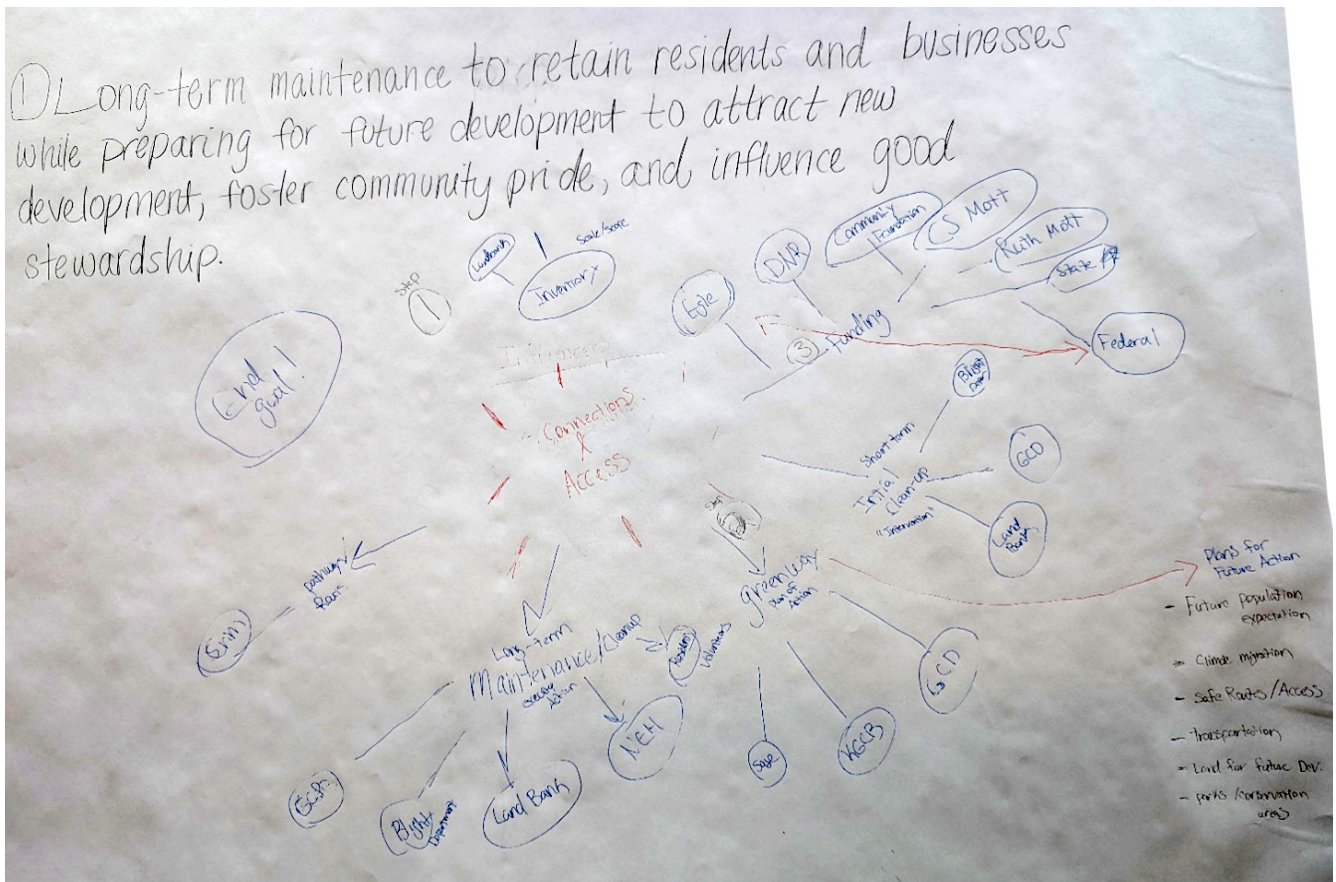 ① Long-term maintenance to retain residents and businesses
while preparing for future development to attract new
development, foster community pride, and influence good
stewardship.
End
goal!
Step
①
Landbank
Scale/Scope
Inventory
Influencers
Connections
&
Access
Egle
DNR
Community
Foundation
CS Mott
Ruth Mott
State
Federal
③ Funding
Short term
Initial
Clean-up
"Intervention"
Blight
GCD
Land
Bank
Step
②
greenway
Plan of
Action
GCD
KGCB
Plans for
Future Action
- Future population
expectation
- Climate migration
- Safe Routes/Access
- transportation
- Land for future Dev.
- parks/conservation
areas
pathways
Erin
Long-term
Maintenance/Cleanup
Action
Residents
Volunteers
NEH
Land Bank
Blight
Department